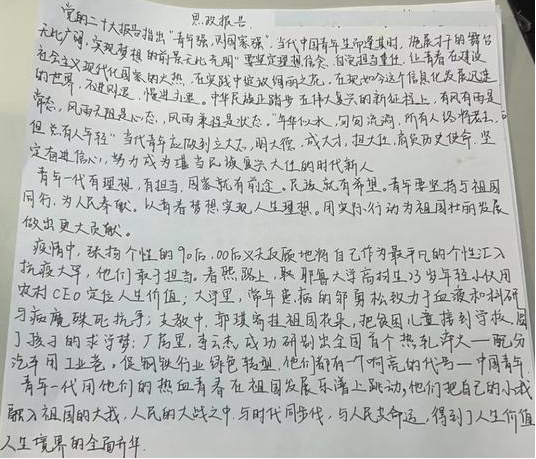 思政报告
党的二十大报告指出"青年强,则国家强".当代中国青年生而逢其时,施展才干的舞台
无比广阔,实现梦想的前景无比光明"要坚定理想信念,自觉担当重任,让青春在建设
社会主义现代化国家的火热,在实践中绽放绚丽之花,在现如今这个信息化发展迅速
的世界,不进则退,慢进则退。中华民族正踏步在伟大复兴的新征程上,有风有雨是
常态,风雨无阻是心态,风雨兼程是状态。"年华似水,匆匆流淌,所有人终将老去,
但总有人年轻"当代青年应做到立大志,明大德,成大才,担大任,肩负历史使命,坚
定奋进信心,努力成为堪当民族复兴大任的时代新人
青年一代有理想,有担当,国家就有前途,民族就有希望。青年要坚持与祖国
同行,为人民奉献。以青春梦想实现人生理想。用实际行动为祖国壮丽发展
做出更大贡献。
疫情中,张扬个性的90后,00后义无反顾地将自己作为最平凡的个性汇入
抗疫大军,他们敢于担当。春熙路上,取耶鲁大学高材生23岁年轻小伙用
农村CEO定位人生价值;大洋里,常年患病的邹勇松致力于血液和科研
与病魔殊死抗争;支教中,郭琪寄挂祖国花朵,把贫困儿童接到学校,圆
了孩子的求学梦;厂房里,李云杰成功研制出全国首个热轧淬火—配分
汽车用工业卷,促钢铁行业绿色转型,他们都有一个响亮的代号—中国青年
青年一代用他们的热血青春在祖国发展乐谱上跳动,他们把自己的小我
融入祖国的大我,人民的大战之中,与时代同步伐,与人民共命运,得到了人生价值
人生境界的全面升华.